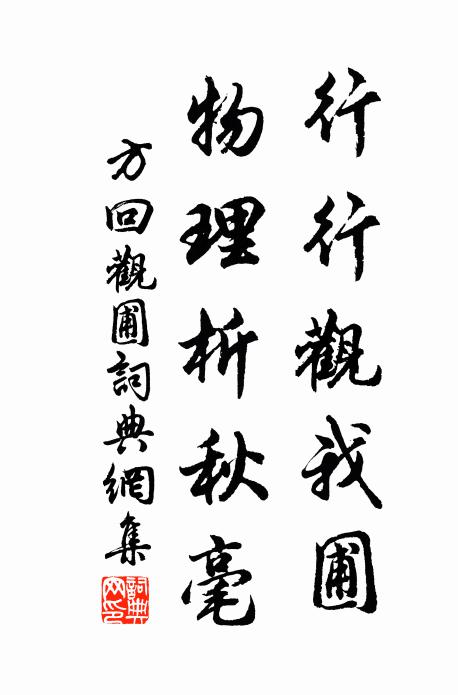 行行觀我圃
物理析秋毫
方回觀圃詞典網集
詞典網印